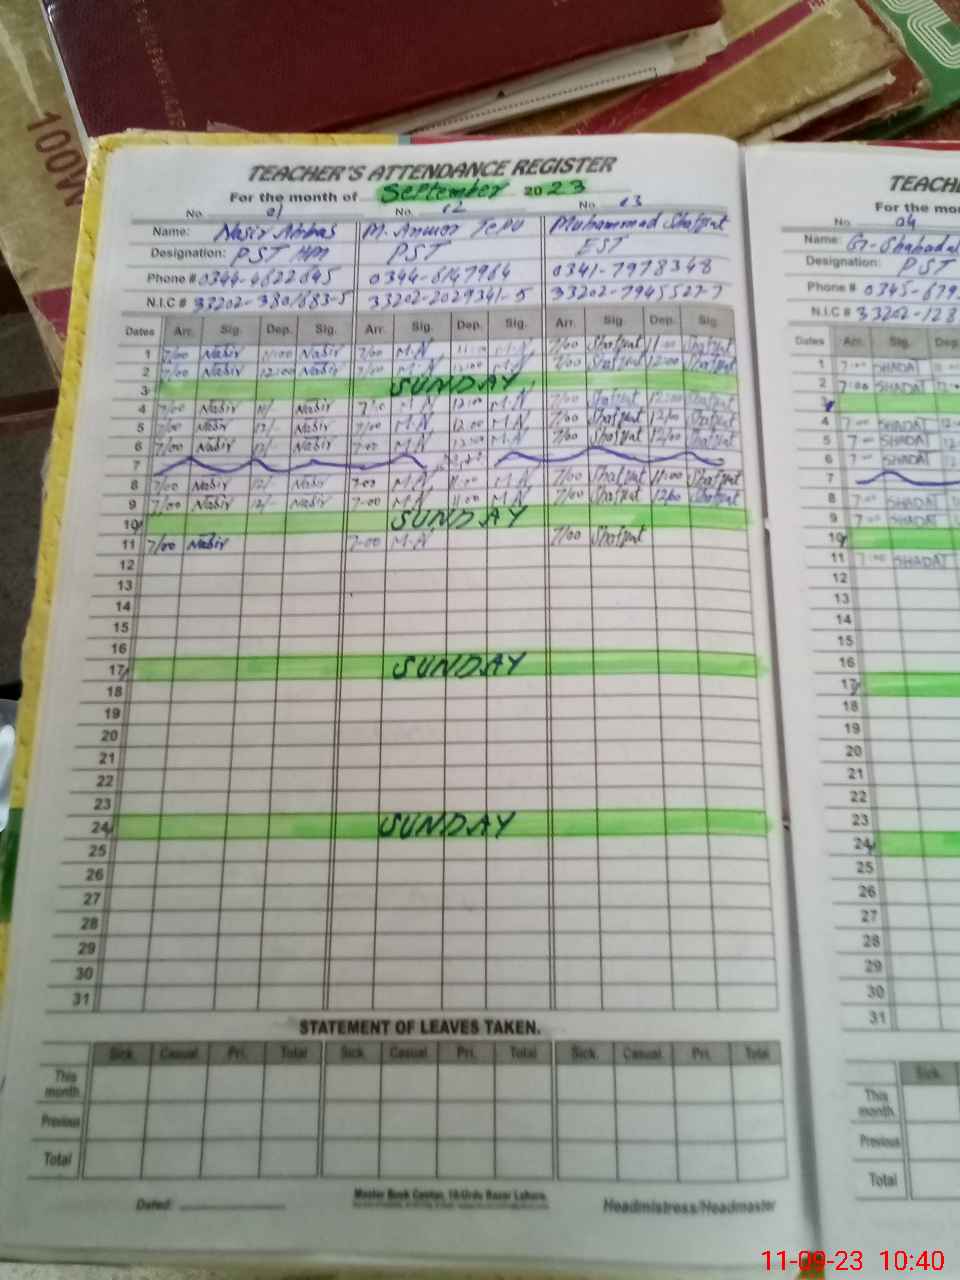 100W
TEACHER'S ATTENDANCE REGISTER
For the month of September 2023
No. 01 No. 02 No. 03
Name: Nasir Abbas M. Anwar Tepu Muhammad Shafqat
Designation: PST HM PST EST
Phone # 0344-4622645 0344-6147964 0341-7978348
N.I.C # 33202-3801683-5 33202-2029341-5 33202-7945527-7
Dates Arr. Sig. Dep. Sig. Arr. Sig. Dep. Sig. Arr. Sig. Dep. Sig.
1 7/00 Nasir 11:00 Nasir 7/00 M.A 11:00 M.A 7/00 Shafqat 11:00 Shafqat
2 7/00 Nasir 12:00 Nasir 7/00 M.A 12:00 M.A 7/00 Shafqat 12:00 Shafqat
3 SUNDAY
4 7/00 Nasir Nasir M.A 12:00 M.A 7/00 Shafqat 12:00 Shafqat
5 7/00 Nasir 12/- Nasir 7/00 M.A 12.00 M.A 7/00 Shafqat 12/00 Shafqat
6 7/00 Nasir 12/- Nasir 7-00 M.A 12:00 M.A 7/00 Shafqat 12/00 Shafqat
7
8 7/00 Nasir 12/- Nasir 7-00 M.A 11.00 M.A 7/00 Shafqat 11:00 Shafqat
9 7/00 Nasir 12/- Nasir 7-00 M.A 11.00 M.A 7/00 Shafqat 12:00 Shafqat
10 SUNDAY
11 7/00 Nasir 7-00 M.A 7/00 Shafqat
12
13
14
15
16
17 SUNDAY
18
19
20
21
22
23
24 SUNDAY
25
26
27
28
29
30
31
STATEMENT OF LEAVES TAKEN.
Sick. Casual. Pri. Total Sick. Casual. Pri. Total Sick. Casual. Pri. Total
This month
Previous
Total
Dated: Master Book Center, 10-Urdu Bazar Lahore. Headmistress/Headmaster
TEACHE
For the mon
No. 04
Name: G. Shahadat
Designation: PST
Phone # 0345-679
N.I.C # 33202-128
Dates Arr. Sig. Dep
1 7:00 SHADAT
2 7:00 SHADAT
3
4 7:00 SHADAT
5 7:00 SHADAT
6 7:00 SHADAT
7
8 7:00 SHADAT
9 7:00 SHADAT
10
11 7:00 SHADAT
12
13
14
15
16
17
18
19
20
21
22
23
24
25
26
27
28
29
30
31
Sick.
This month
Previous
Total
11-09-23 10:40